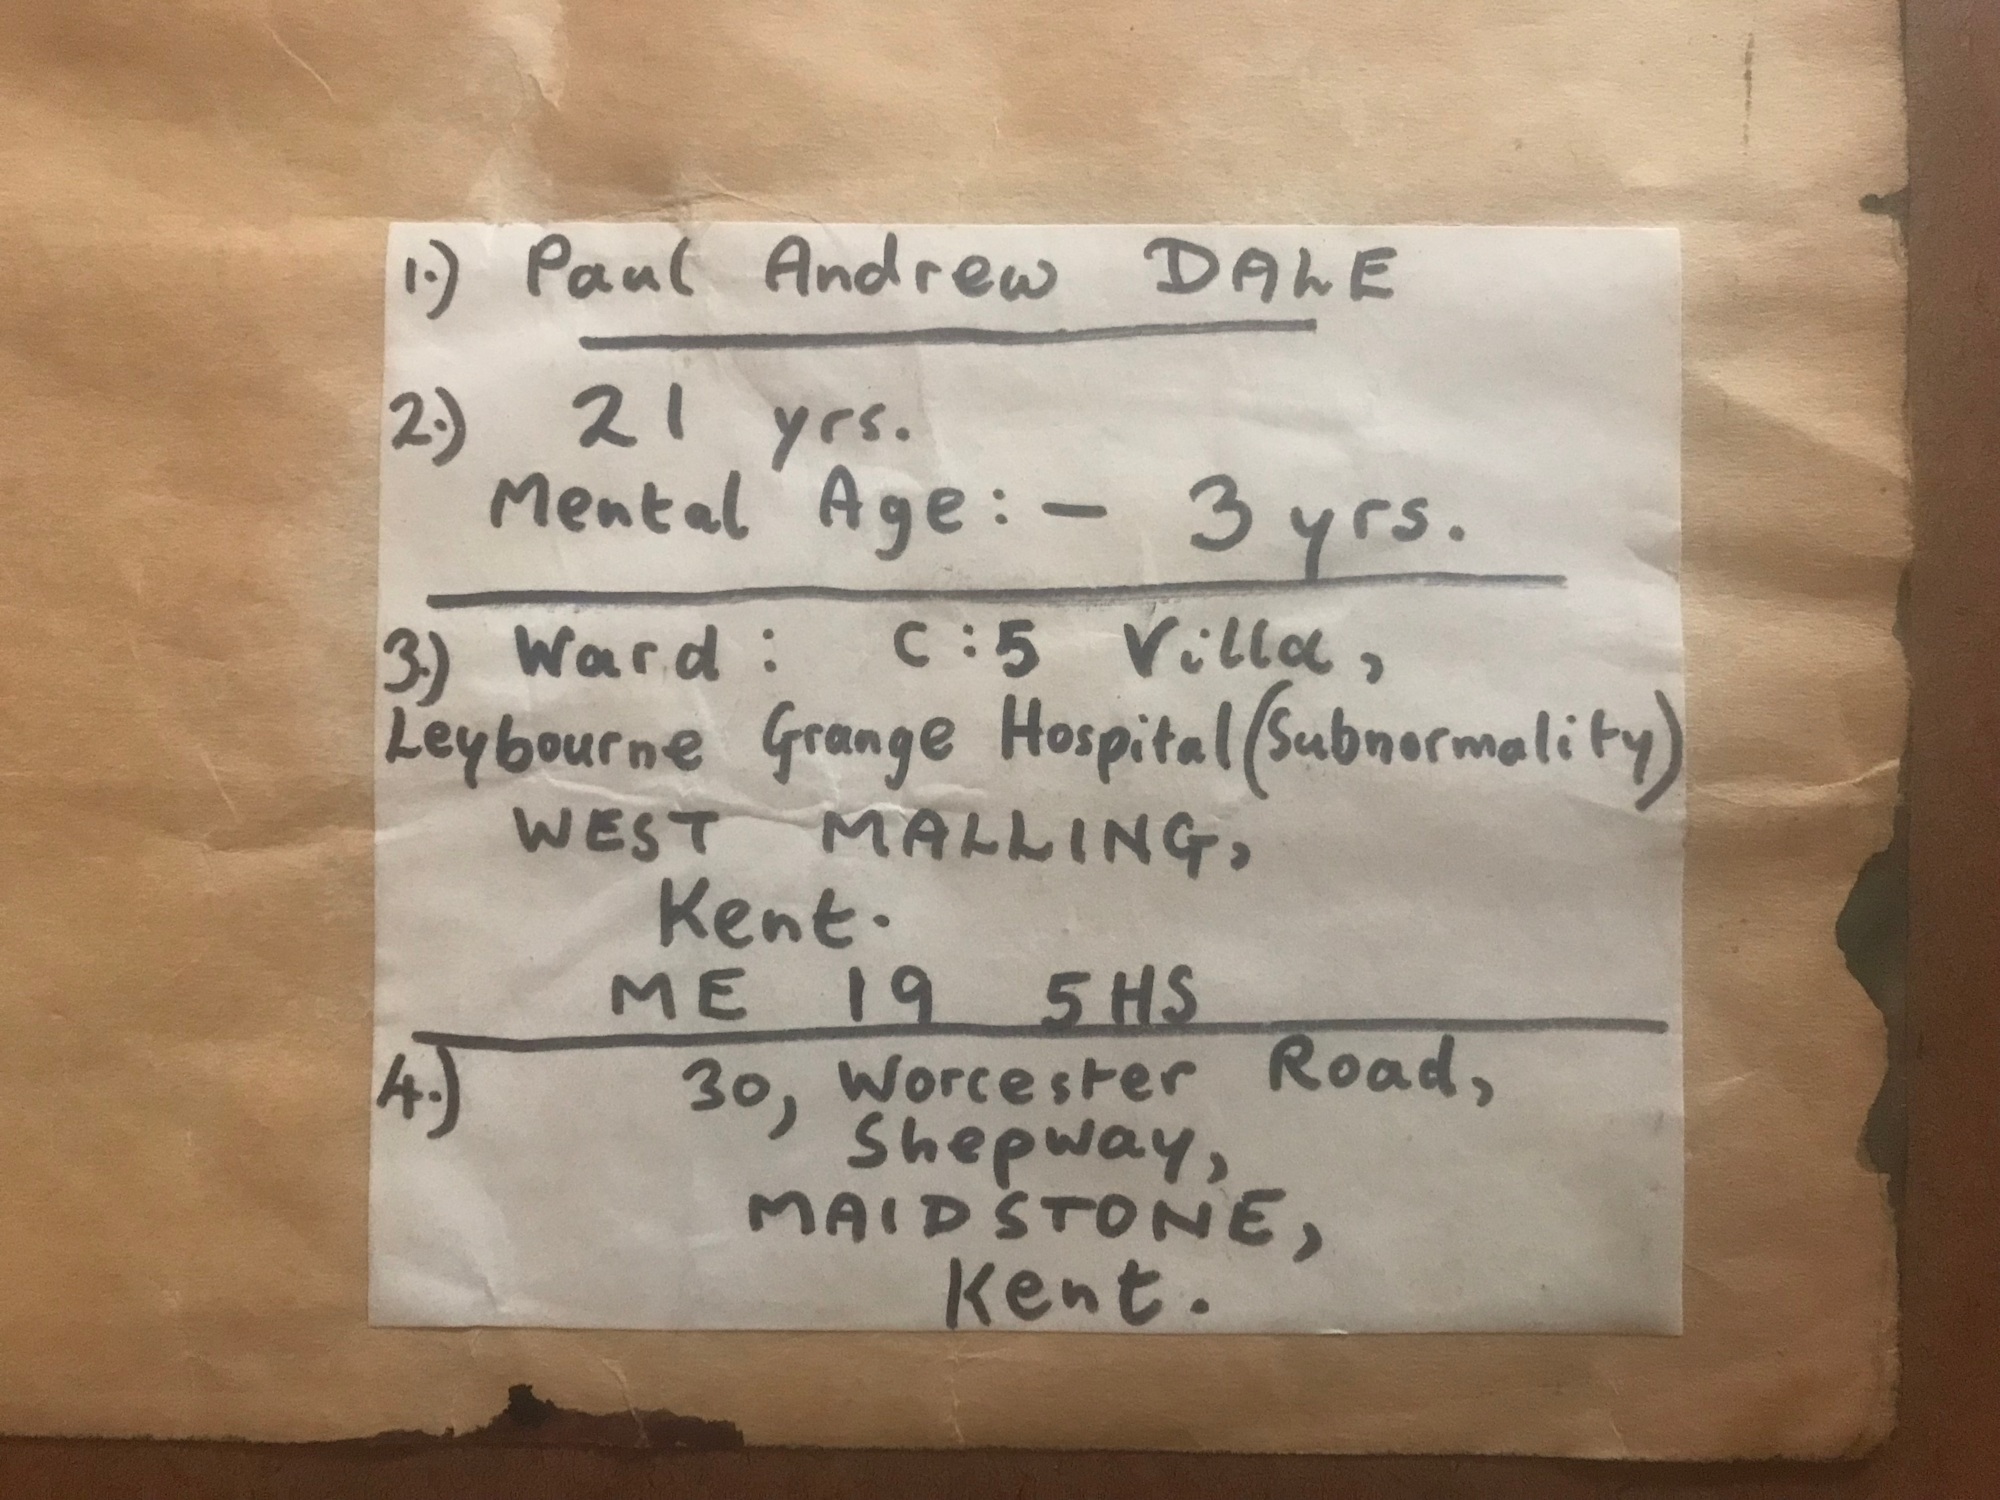 1.) Paul Andrew DALE
2.) 21 yrs.
Mental Age:- 3 yrs.
3.) Ward: C:5 Villa,
Leybourne Grange Hospital (Subnormality)
WEST MALLING,
Kent.
ME 19 5HS
4.) 30, Worcester Road,
Shepway,
MAIDSTONE,
Kent.